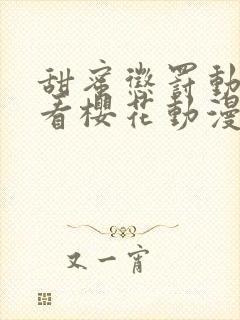 甜蜜懲罰動
看櫻花動漫
又一宵